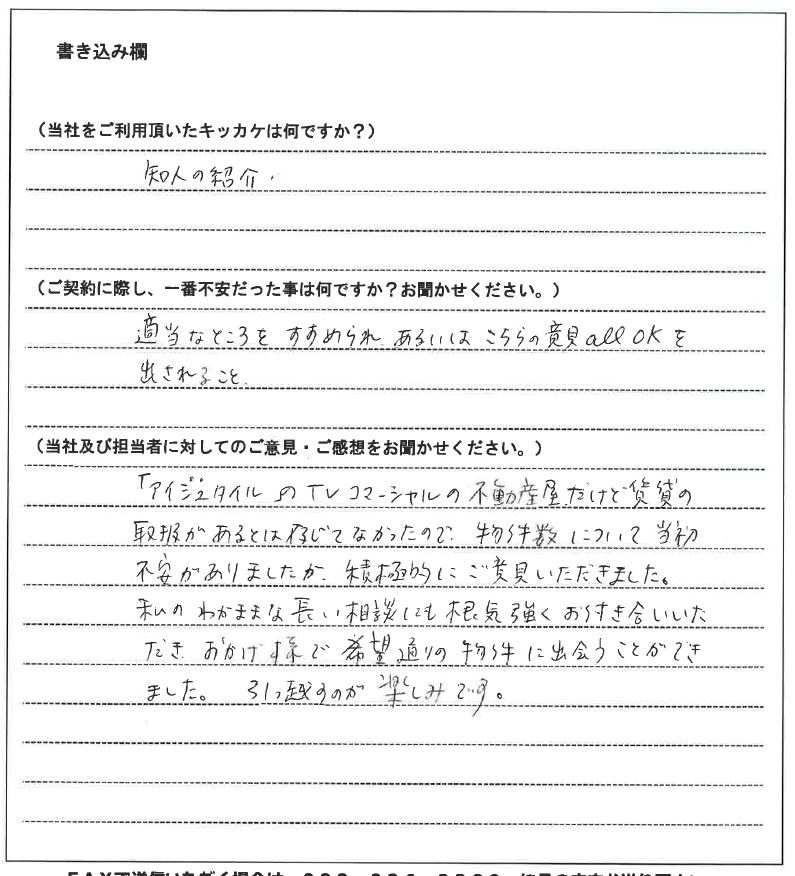 書き込み欄
（当社をご利用頂いたキッカケは何ですか？）
知人の紹介．
（ご契約に際し、一番不安だった事は何ですか？お聞かせください。）
適当なところを すすめられ、あるいは こちらの意見all OKを
出されること．
（当社及び担当者に対してのご意見・ご感想をお聞かせください。）
「アイジースタイル」のTVコマーシャルの不動産屋だけど賃貸の
取扱があるとは存じてなかったので、物件数について当初
不安がありましたが、積極的にご意見いただきました。
私の わがままな長い相談にも根気強く お付き合いいた
だき おかげ様で希望通りの物件に出会うことができ
ました。 引っ越すのが楽しみです。